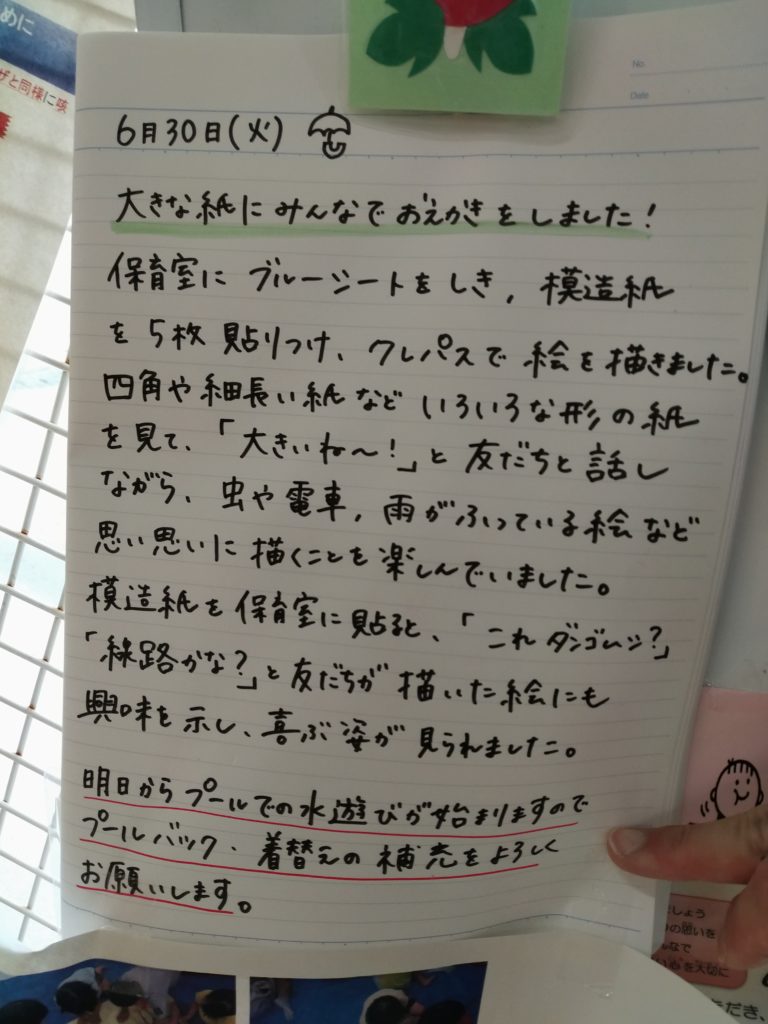 めに
ザと同様に咳
No.
Date
6月30日(火)
大きな紙にみんなでおえがきをしました!
保育室に ブルーシートをしき, 模造紙
を5枚 貼りつけ、クレパスで 絵を描きました。
四角や細長い紙など いろいろな形の紙
を見て、「大きいね〜!」と 友だちと話し
ながら、虫や電車, 雨がふっている絵など
思い思いに描くことを楽しんでいました。
模造紙を保育室に貼ると、「これダンゴムシ?」
「線路かな?」と友だちが描いた絵にも
興味を示し、喜ぶ姿が見られました。
明日からプールでの水遊びが始まりますので
プールバック・着替えの補充をよろしく
お願いします。
しょう
の願いを
んなで
を大切に
だき、